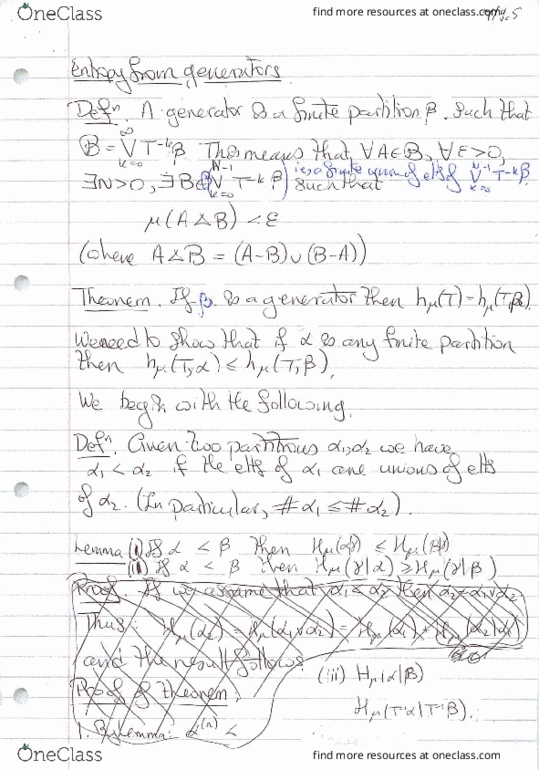 OneClass
find more resources at oneclass.com
Entropy from generators.
Defⁿ. A generator is a finite partition β such that
B = ∨ T⁻ᵏβ. This means that ∀A∈B, ∀ε>0,
k=0 ∞
∃N>0, ∃B∈ ∨ T⁻ᵏβ (is a finite union of elts of ∨ T⁻ᵏβ) such that
k=0 N-1
μ(A△B) < ε
(where A△B = (A-B)∪(B-A))
Theorem. If β is a generator then hμ(T) = hμ(T,β).
We need to show that if α is any finite partition
then hμ(T,α) ≤ hμ(T,β).
We begin with the following.
Defⁿ. Given two partitions α₁,α₂ we have
α₁ < α₂ if the elts of α₁ are unions of elts
of α₂. (In particular, #α₁ ≤ #α₂).
Lemma (i) If α < β then Hμ(α) ≤ Hμ(β)
(ii) If α < β then Hμ(γ|α) ≥ Hμ(γ|β)
Proof. If we assume that α₁<α₂ then α₂=α₁∨α₂
Thus: Hμ(α₂) = Hμ(α₁∨α₂) = Hμ(α₁) + Hμ(α₂|α₁)
and the result follows.
(iii) Hμ(α|β)
Proof of theorem.
Hμ(T⁻¹α|T⁻¹β).
1. By lemma: α⁽ⁿ⁾ <
OneClass
find more resources at oneclass.com